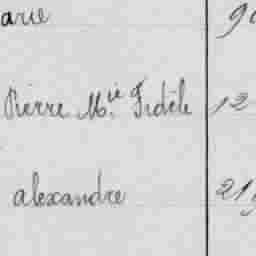 arie 90
Pierre M.ie Fidèle 12
alexandre 21